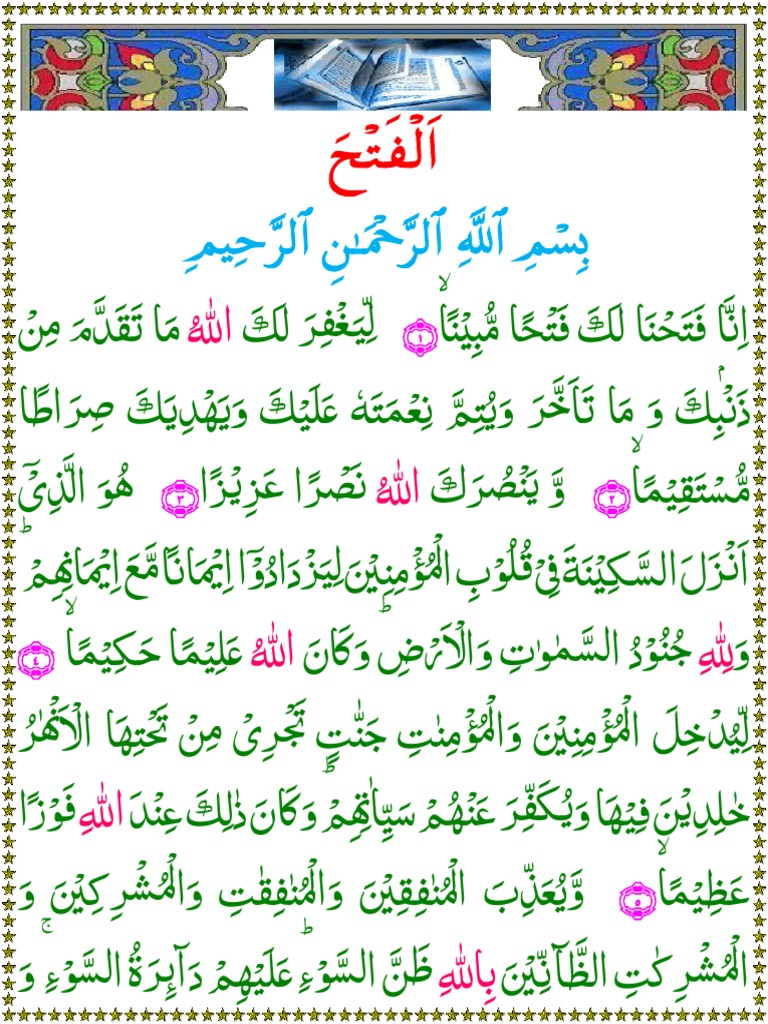 اَلْفَتْحَ
بِسْمِ ٱللَّهِ ٱلرَّحْمَـٰنِ ٱلرَّحِيمِ
اِنَّا فَتَحْنَا لَكَ فَتْحًا مُّبِيْنًاۙ ۝۱ لِّيَغْفِرَ لَكَ اللّٰهُ مَا تَقَدَّمَ مِنْ
ذَنْۢبِكَ وَ مَا تَاَخَّرَ وَيُتِمَّ نِعْمَتَهٗ عَلَيْكَ وَيَهْدِيَكَ صِرَاطًا
مُّسْتَقِيْمًاۙ ۝۲ وَّ يَنْصُرَكَ اللّٰهُ نَصْرًا عَزِيْزًا ۝۳ هُوَ الَّذِيْۤ
اَنْزَلَ السَّكِيْنَةَ فِيْ قُلُوْبِ الْمُؤْمِنِيْنَ لِيَزْدَادُوْۤا اِيْمَانًا مَّعَ اِيْمَانِهِمْؕ
وَلِلّٰهِ جُنُوْدُ السَّمٰوٰتِ وَالْاَرْضِؕ وَكَانَ اللّٰهُ عَلِيْمًا حَكِيْمًاۙ ۝۴
لِّيُدْخِلَ الْمُؤْمِنِيْنَ وَالْمُؤْمِنٰتِ جَنّٰتٍ تَجْرِيْ مِنْ تَحْتِهَا الْاَنْهٰرُ
خٰلِدِيْنَ فِيْهَا وَيُكَفِّرَ عَنْهُمْ سَيِّاٰتِهِمْؕ وَكَانَ ذٰلِكَ عِنْدَ اللّٰهِ فَوْزًا
عَظِيْمًاۙ ۝۵ وَّيُعَذِّبَ الْمُنٰفِقِيْنَ وَالْمُنٰفِقٰتِ وَالْمُشْرِكِيْنَ وَ
الْمُشْرِكٰتِ الظَّآنِّيْنَ بِاللّٰهِ ظَنَّ السَّوْءِؕ عَلَيْهِمْ دَآىِٕرَةُ السَّوْءِۚ وَ